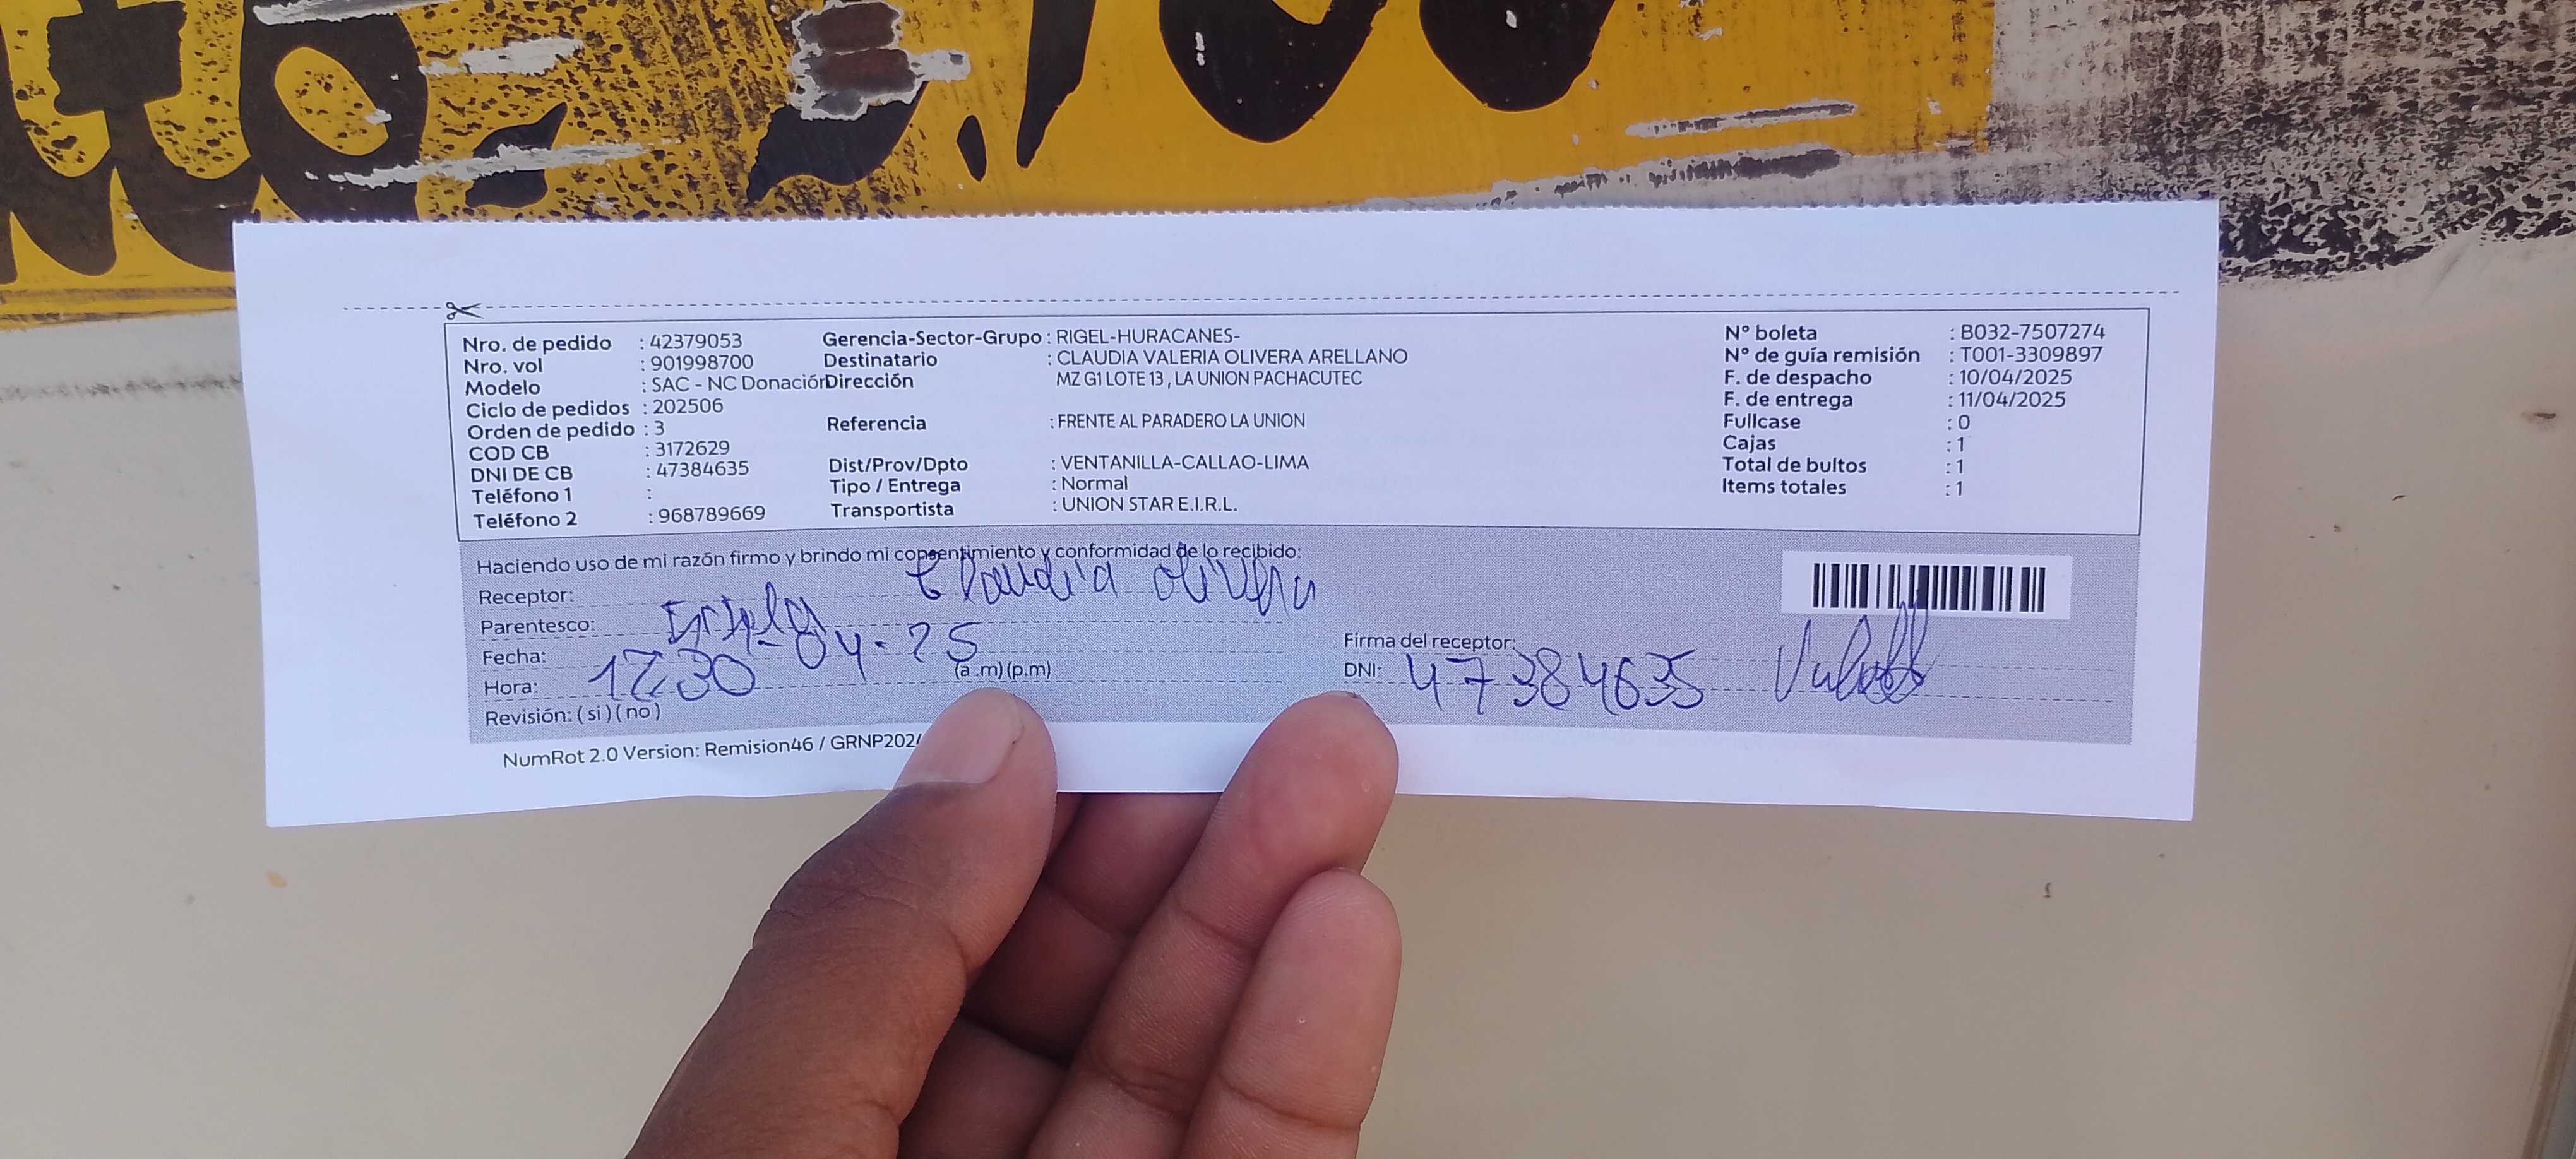 Nro. de pedido : 42379053 Gerencia-Sector-Grupo : RIGEL-HURACANES- N° boleta : B032-7507274
Nro. vol : 901998700 Destinatario : CLAUDIA VALERIA OLIVERA ARELLANO N° de guía remisión : T001-3309897
Modelo : SAC - NC Donación Dirección MZ G1 LOTE 13 , LA UNION PACHACUTEC F. de despacho : 10/04/2025
Ciclo de pedidos : 202506 F. de entrega : 11/04/2025
Orden de pedido : 3 Referencia : FRENTE AL PARADERO LA UNION Fullcase : 0
COD CB : 3172629 Cajas : 1
DNI DE CB : 47384635 Dist/Prov/Dpto : VENTANILLA-CALLAO-LIMA Total de bultos : 1
Teléfono 1 : Tipo / Entrega : Normal Items totales : 1
Teléfono 2 : 968789669 Transportista : UNION STAR E.I.R.L.
Haciendo uso de mi razón firmo y brindo mi consentimiento y conformidad de lo recibido:
Receptor: Claudia Olivera
Parentesco:
Fecha: -04-25 Firma del receptor:
Hora: 30 (a .m) (p.m) DNI: 47384635
Revisión: ( si ) ( no )
NumRot 2.0 Version: Remision46 / GRNP202